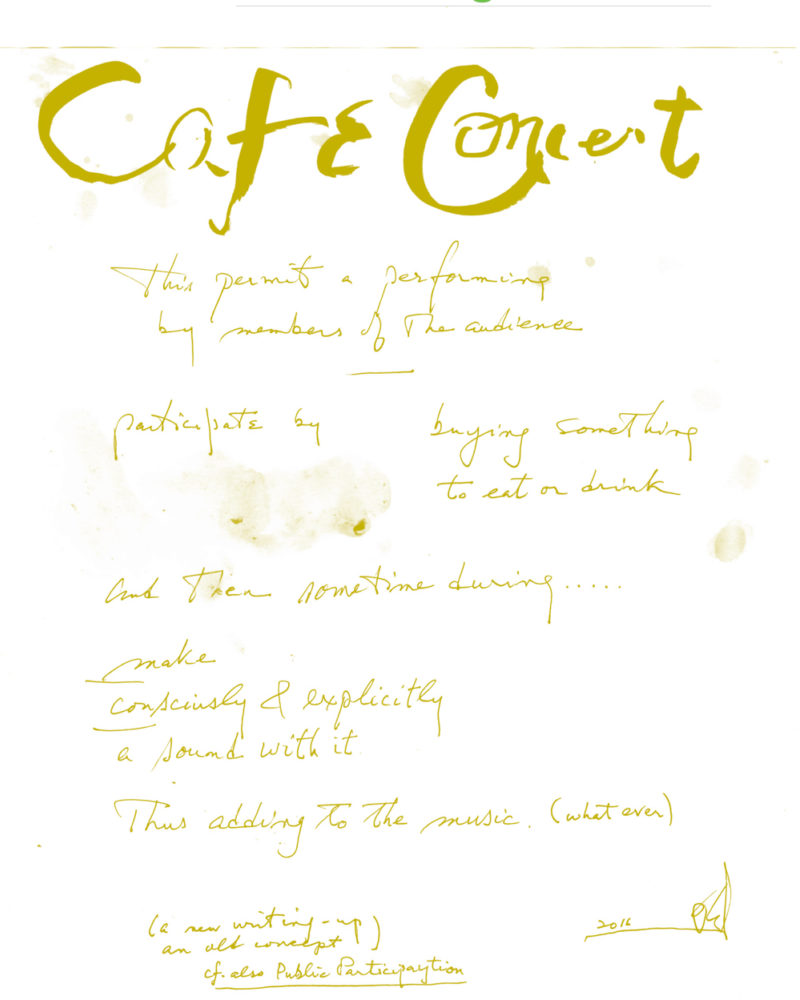 Café Concert
This permit a performing
by members of The audience
participate by buying something
to eat or drink
and Then sometime during.....
make
consciusly & explicitly
a sound with it.
Thus adding to The music. (what ever)
(a new writing-up)
an old concept
cf. also Public Participaytion
2016